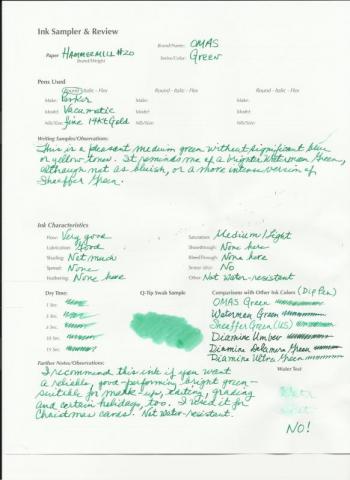 Ink Sampler & Review
Paper HAMMERMILL #20 Brand/Name: OMAS
Brand/Weight Series/Color: Green
Pens Used
Round - Italic - Flex Round - Italic - Flex Round - Italic - Flex
Make: Parker Make: Make:
Model: Vacumatic Model: Model:
Nib/Size: fine 14Kt Gold Nib/Size: Nib/Size:
Writing Samples/Observations:
This is a pleasant medium green without significant blue
or yellow tones. It reminds me of a brighter Waterman Green,
although not as bluish, or a more intense version of
Sheaffer Green.
Ink Characteristics
Flow: Very good Saturation: Medium/Light
Lubrication: Good Showthrough: None here
Shading: Not much Bleedthrough: None here
Spread: None No
Feathering: None here Other: Not water-resistant
Dry Time: Q-Tip Swab Sample Comparisons with Other Ink Colors (Dip Pen)
1 Sec OMAS Green
Waterman Green
Sheaffer Green (US)
Diamine Umber
Diamine Delamere Green
Diamine Ultra Green
Further Notes/Observations: Water Test
I recommend this ink if you want
a reliable, good-performing bright green-
suitable for mark-ups, editing, grading
and certain holidays, too. I used it for
Christmas cards. Not water-resistant.
NO!